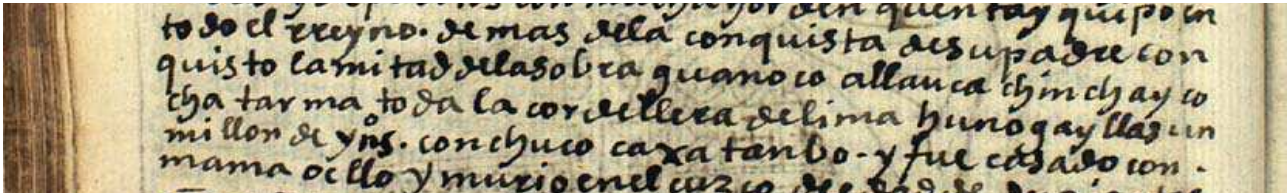 con mucho horden quenta y quipo en
todo el rreyno. demas dela conquista desupadre con
quisto lamitad delasobra guanoco allauca chinchayco
cha tarma toda la cordellera delima hunoguayllas un
millon de yns. conchuco caxatanbo. y fue casado con.
mama ocllo y murio enel cuzco de edad de